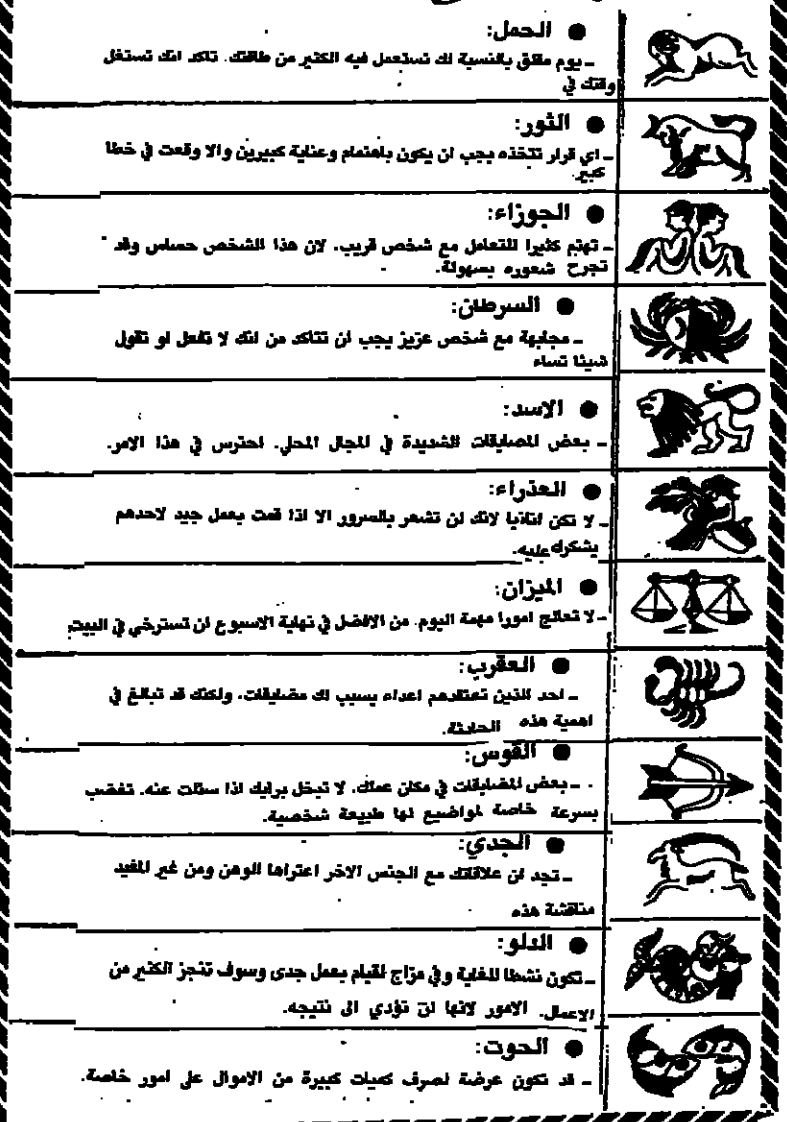 ● الحمل:
ـ يوم مقلق بالنسبة لك تستعمل فيه الكثير من طاقتك. تاكد انك تستغل
وقتك في
● الثور:
ـ اي قرار تتخذه يجب ان يكون باهتمام وعناية كبيرين والا وقعت في خطا
كبير.
● الجوزاء:
ـ تهتم كثيرا للتعامل مع شخص قريب. لان هذا الشخص حساس وقد
تجرح شعوره بسهولة.
● السرطان:
ـ مجابهة مع شخص عزيز يجب ان تتاكد من انك لا تفعل او تقول
شيئا تساء
● الاسد:
ـ بعض المضايقات الشديدة في المجال المحلي. احترس في هذا الامر.
● العذراء:
ـ لا تكن انانيا لانك لن تشعر بالسرور الا اذا قمت بعمل جيد لاحدهم
يشكرك عليه.
● الميزان:
ـ لا تعالج امورا مهمة اليوم. من الافضل في نهاية الاسبوع ان تسترخي في البيت.
● العقرب:
ـ احد الذين تعتقدهم اعداء يسبب لك مضايقات. ولكنك قد تبالغ في
اهمية هذه الحادثة.
● القوس:
ـ بعض المضايقات في مكان عملك. لا تبخل برايك اذا سئلت عنه. تغضب
بسرعة خاصة لمواضيع لها طبيعة شخصية.
● الجدي:
ـ تجد ان علاقاتك مع الجنس الاخر اعتراها الوهن ومن غير المفيد
مناقشة هذه
● الدلو:
ـ تكون نشطا للغاية وفي مزاج للقيام بعمل جدى وسوف تنجز الكثير من
الاعمال. الامور لانها لن تؤدي الى نتيجه.
● الحوت:
ـ قد تكون عرضة لصرف كميات كبيرة من الاموال على امور خاصة.